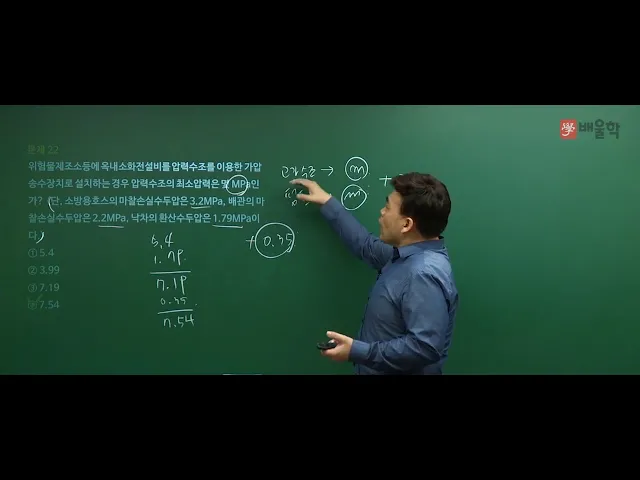 배울학
문제 22
위험물제조소등에 옥내소화전설비를 압력수조를 이용한 가압
송수장치로 설치하는 경우 압력수조의 최소압력은 몇 MPa인
가? (단, 소방용호스의 마찰손실수두압은 3.2MPa, 배관의 마
찰손실수두압은 2.2MPa, 낙차의 환산수두압은 1.79MPa이
다)
① 5.4
② 3.99
③ 7.19
④ 7.54
5.4
1.79
7.19
0.35
7.54
+ 0.35
고가수조 → m
m
+